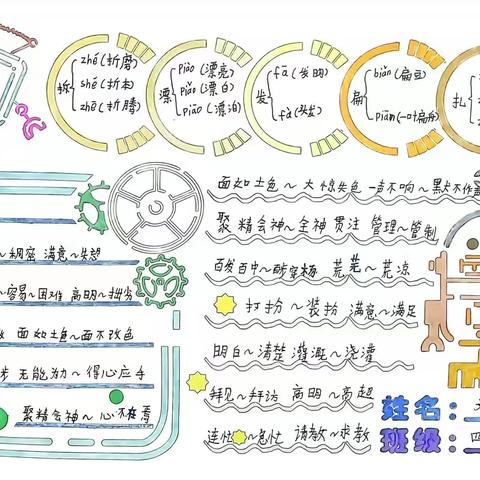 折 zhé(折磨)
shé(折本)
zhē(折腾)
漂 piào(漂亮)
piǎo(漂白)
piāo(漂泊)
发 fā(发明)
fà(头发)
扁 biǎn(扁豆)
piān(一叶扁舟)
扎
~稠密 满意~失望
~容易~困难 高明~拙劣
面如土色~面不改色
无能为力~得心应手
聚精会神~心不在焉
面如土色~大惊失色 一声不响~默不作
聚精会神~全神贯注 管理~管制
百发百中~ 荒芜~荒凉
打扮~装扮 满意~满足
明白~清楚 灌溉~浇灌
拜见~拜访 高明~高超
连忙~急忙 请教~求教
姓名:
班级:四